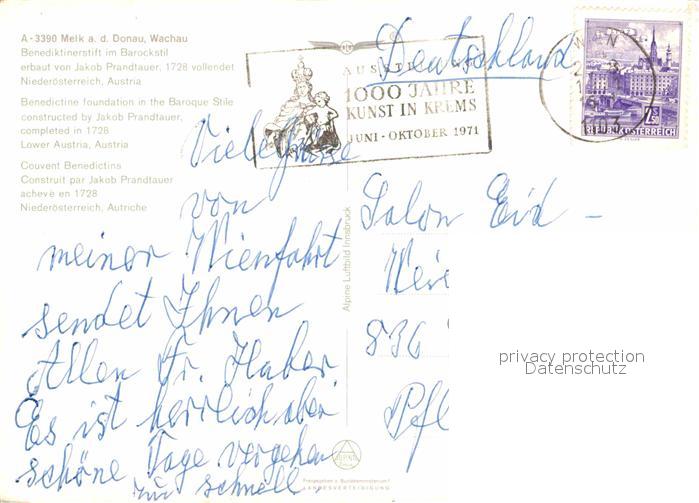 A - 3390 Melk a. d. Donau, Wachau
Benediktinerstift im Barockstil
erbaut von Jakob Prandtauer, 1728 vollendet
Niederösterreich, Austria
Benedictine foundation in the Baroque Stile
constructed by Jakob Prandtauer,
completed in 1728
Lower Austria, Austria
Couvent Benedictins
Construit par Jakob Prandtauer
achevé en 1728
Niederösterreich, Autriche
1000 JAHRE
KUNST IN KREMS
JUNI - OKTOBER 1971
WIEN
REPUBLIK ÖSTERREICH
Deutschland
Viele Grüsse
von
meiner Wienfahrt
sendet Ihnen
Allen Fr. Huber
Es ist herrlich aber
schöne Tage vergehen
zu schnell
Alpine Luftbild Innsbruck
Salon
836
Pf
privacy protection
Datenschutz
Freigegeben v. Bundesministerium f.
LANDESVERTEIDIGUNG